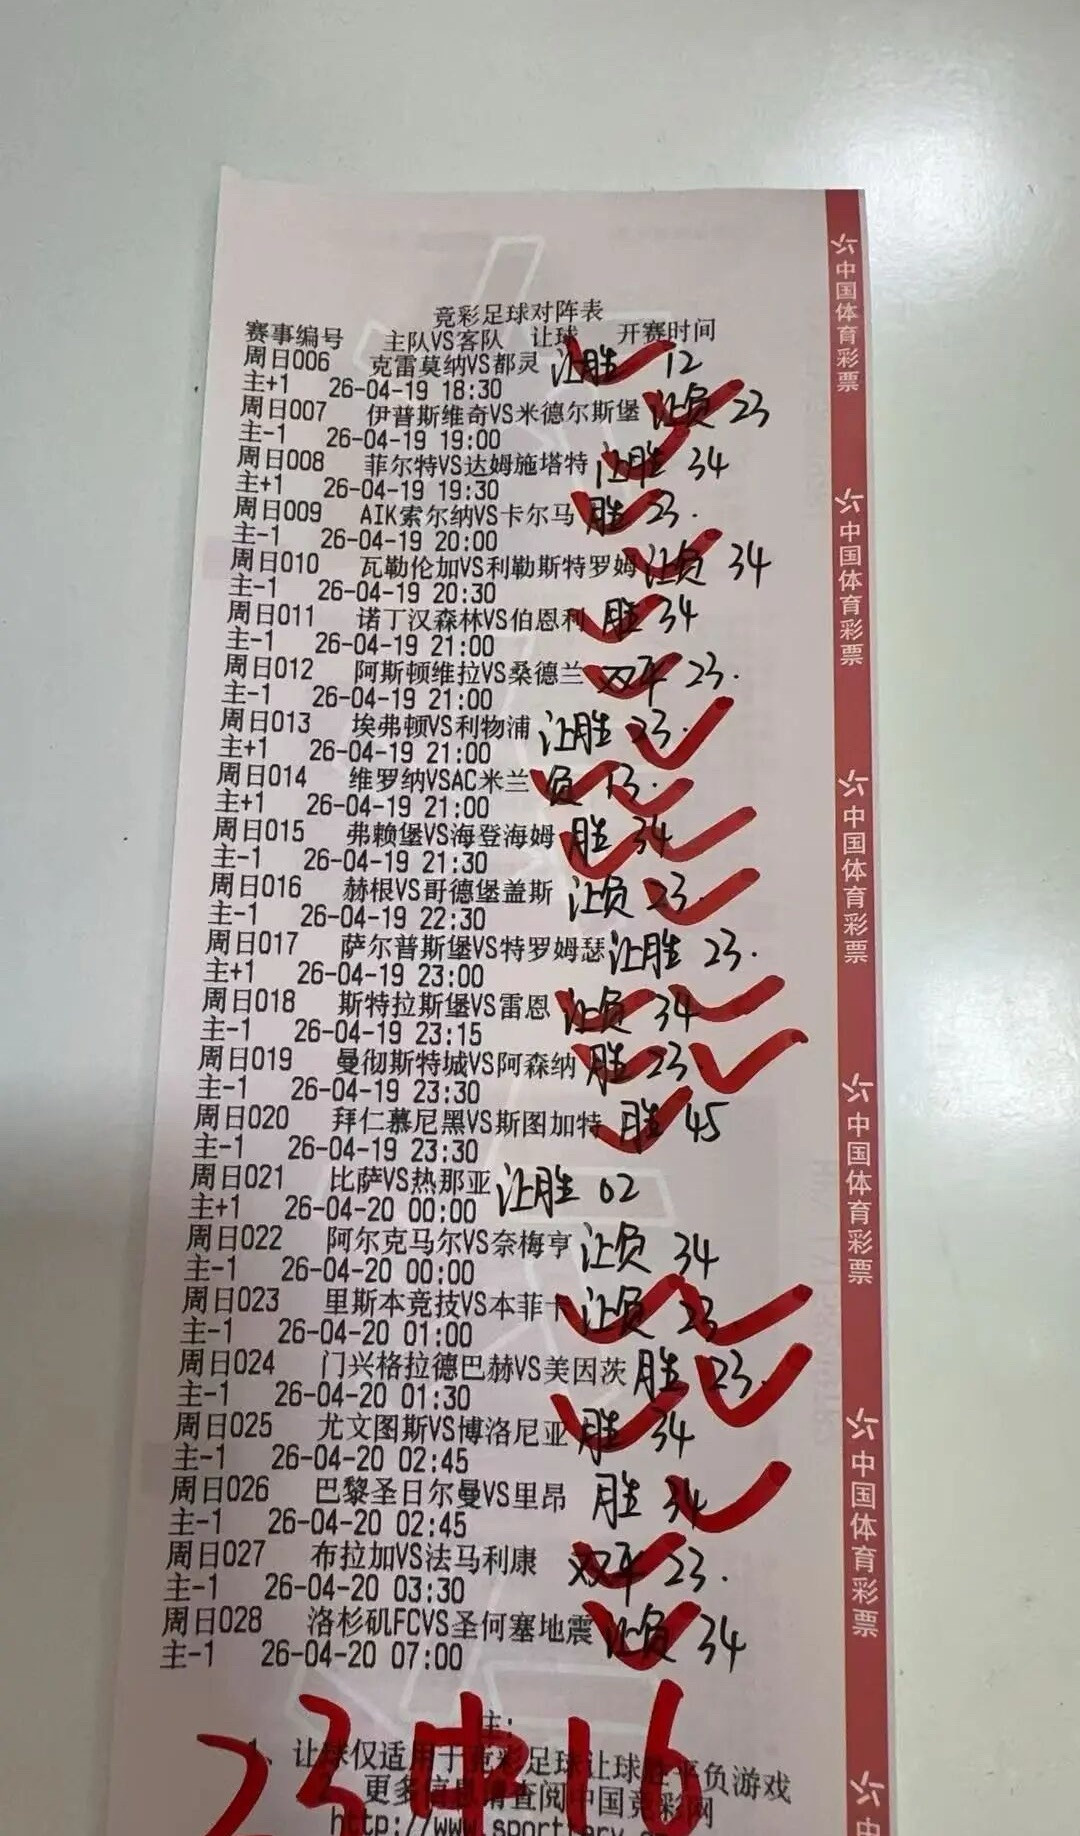 竞彩足球对阵表
赛事编号 主队VS客队 让球 开赛时间
周日006 克雷莫纳VS都灵 让胜 12
主+1 26-04-19 18:30
周日007 伊普斯维奇VS米德尔斯堡 让负 23
主-1 26-04-19 19:00
周日008 菲尔特VS达姆施塔特 让胜 34
主+1 26-04-19 19:30
周日009 AIK索尔纳VS卡尔马 胜 23.
主-1 26-04-19 20:00
周日010 瓦勒伦加VS利勒斯特罗姆 让负 34
主-1 26-04-19 20:30
周日011 诺丁汉森林VS伯恩利 胜 34
主-1 26-04-19 21:00
周日012 阿斯顿维拉VS桑德兰 双平 23.
主-1 26-04-19 21:00
周日013 埃弗顿VS利物浦 让胜 23.
主+1 26-04-19 21:00
周日014 维罗纳VSAC米兰 负 13.
主+1 26-04-19 21:00
周日015 弗赖堡VS海登海姆 胜 34
主-1 26-04-19 21:30
周日016 赫根VS哥德堡盖斯 让负 23.
主-1 26-04-19 22:30
周日017 萨尔普斯堡VS特罗姆瑟 让胜 23.
主+1 26-04-19 23:00
周日018 斯特拉斯堡VS雷恩 让负 34
主-1 26-04-19 23:15
周日019 曼彻斯特城VS阿森纳 胜 23
主-1 26-04-19 23:30
周日020 拜仁慕尼黑VS斯图加特 胜 45
主-1 26-04-19 23:30
周日021 比萨VS热那亚 让胜 02
主+1 26-04-20 00:00
周日022 阿尔克马尔VS奈梅亨 让负 34
主-1 26-04-20 00:00
周日023 里斯本竞技VS本菲卡 让负 23
主-1 26-04-20 01:00
周日024 门兴格拉德巴赫VS美因茨 胜 23.
主-1 26-04-20 01:30
周日025 尤文图斯VS博洛尼亚 胜 34
主-1 26-04-20 02:45
周日026 巴黎圣日尔曼VS里昂 胜 34
主-1 26-04-20 02:45
周日027 布拉加VS法马利康 双平 23.
主-1 26-04-20 03:30
周日028 洛杉矶FCVS圣何塞地震 让负 34
主-1 26-04-20 07:00
23中16
注:
1、让球仅适用于竞彩足球让球胜平负游戏
更多信息请查阅中国竞彩网
http://www.sporttery.c
中国体育彩票
中国体育彩票
中国体育彩票
中国体育彩票
中国体育彩票
中